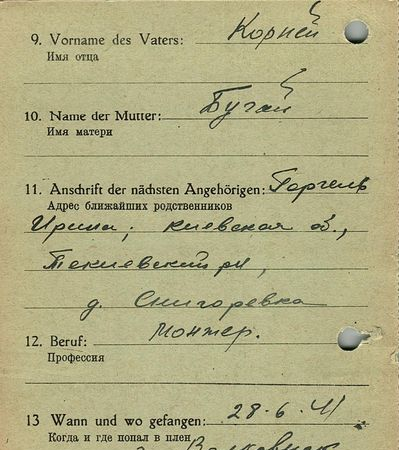 9. Vorname des Vaters: Корней
Имя отца
10. Name der Mutter: Бугай
Имя матери
11. Anschrift der nächsten Angehörigen: Горгель
Адрес ближайших родственников
Ирина; киевская об.,
д. Снигоревка
12. Beruf: Монжер.
Профессия
13 Wann und wo gefangen: 28.6.41
Когда и где попал в плен